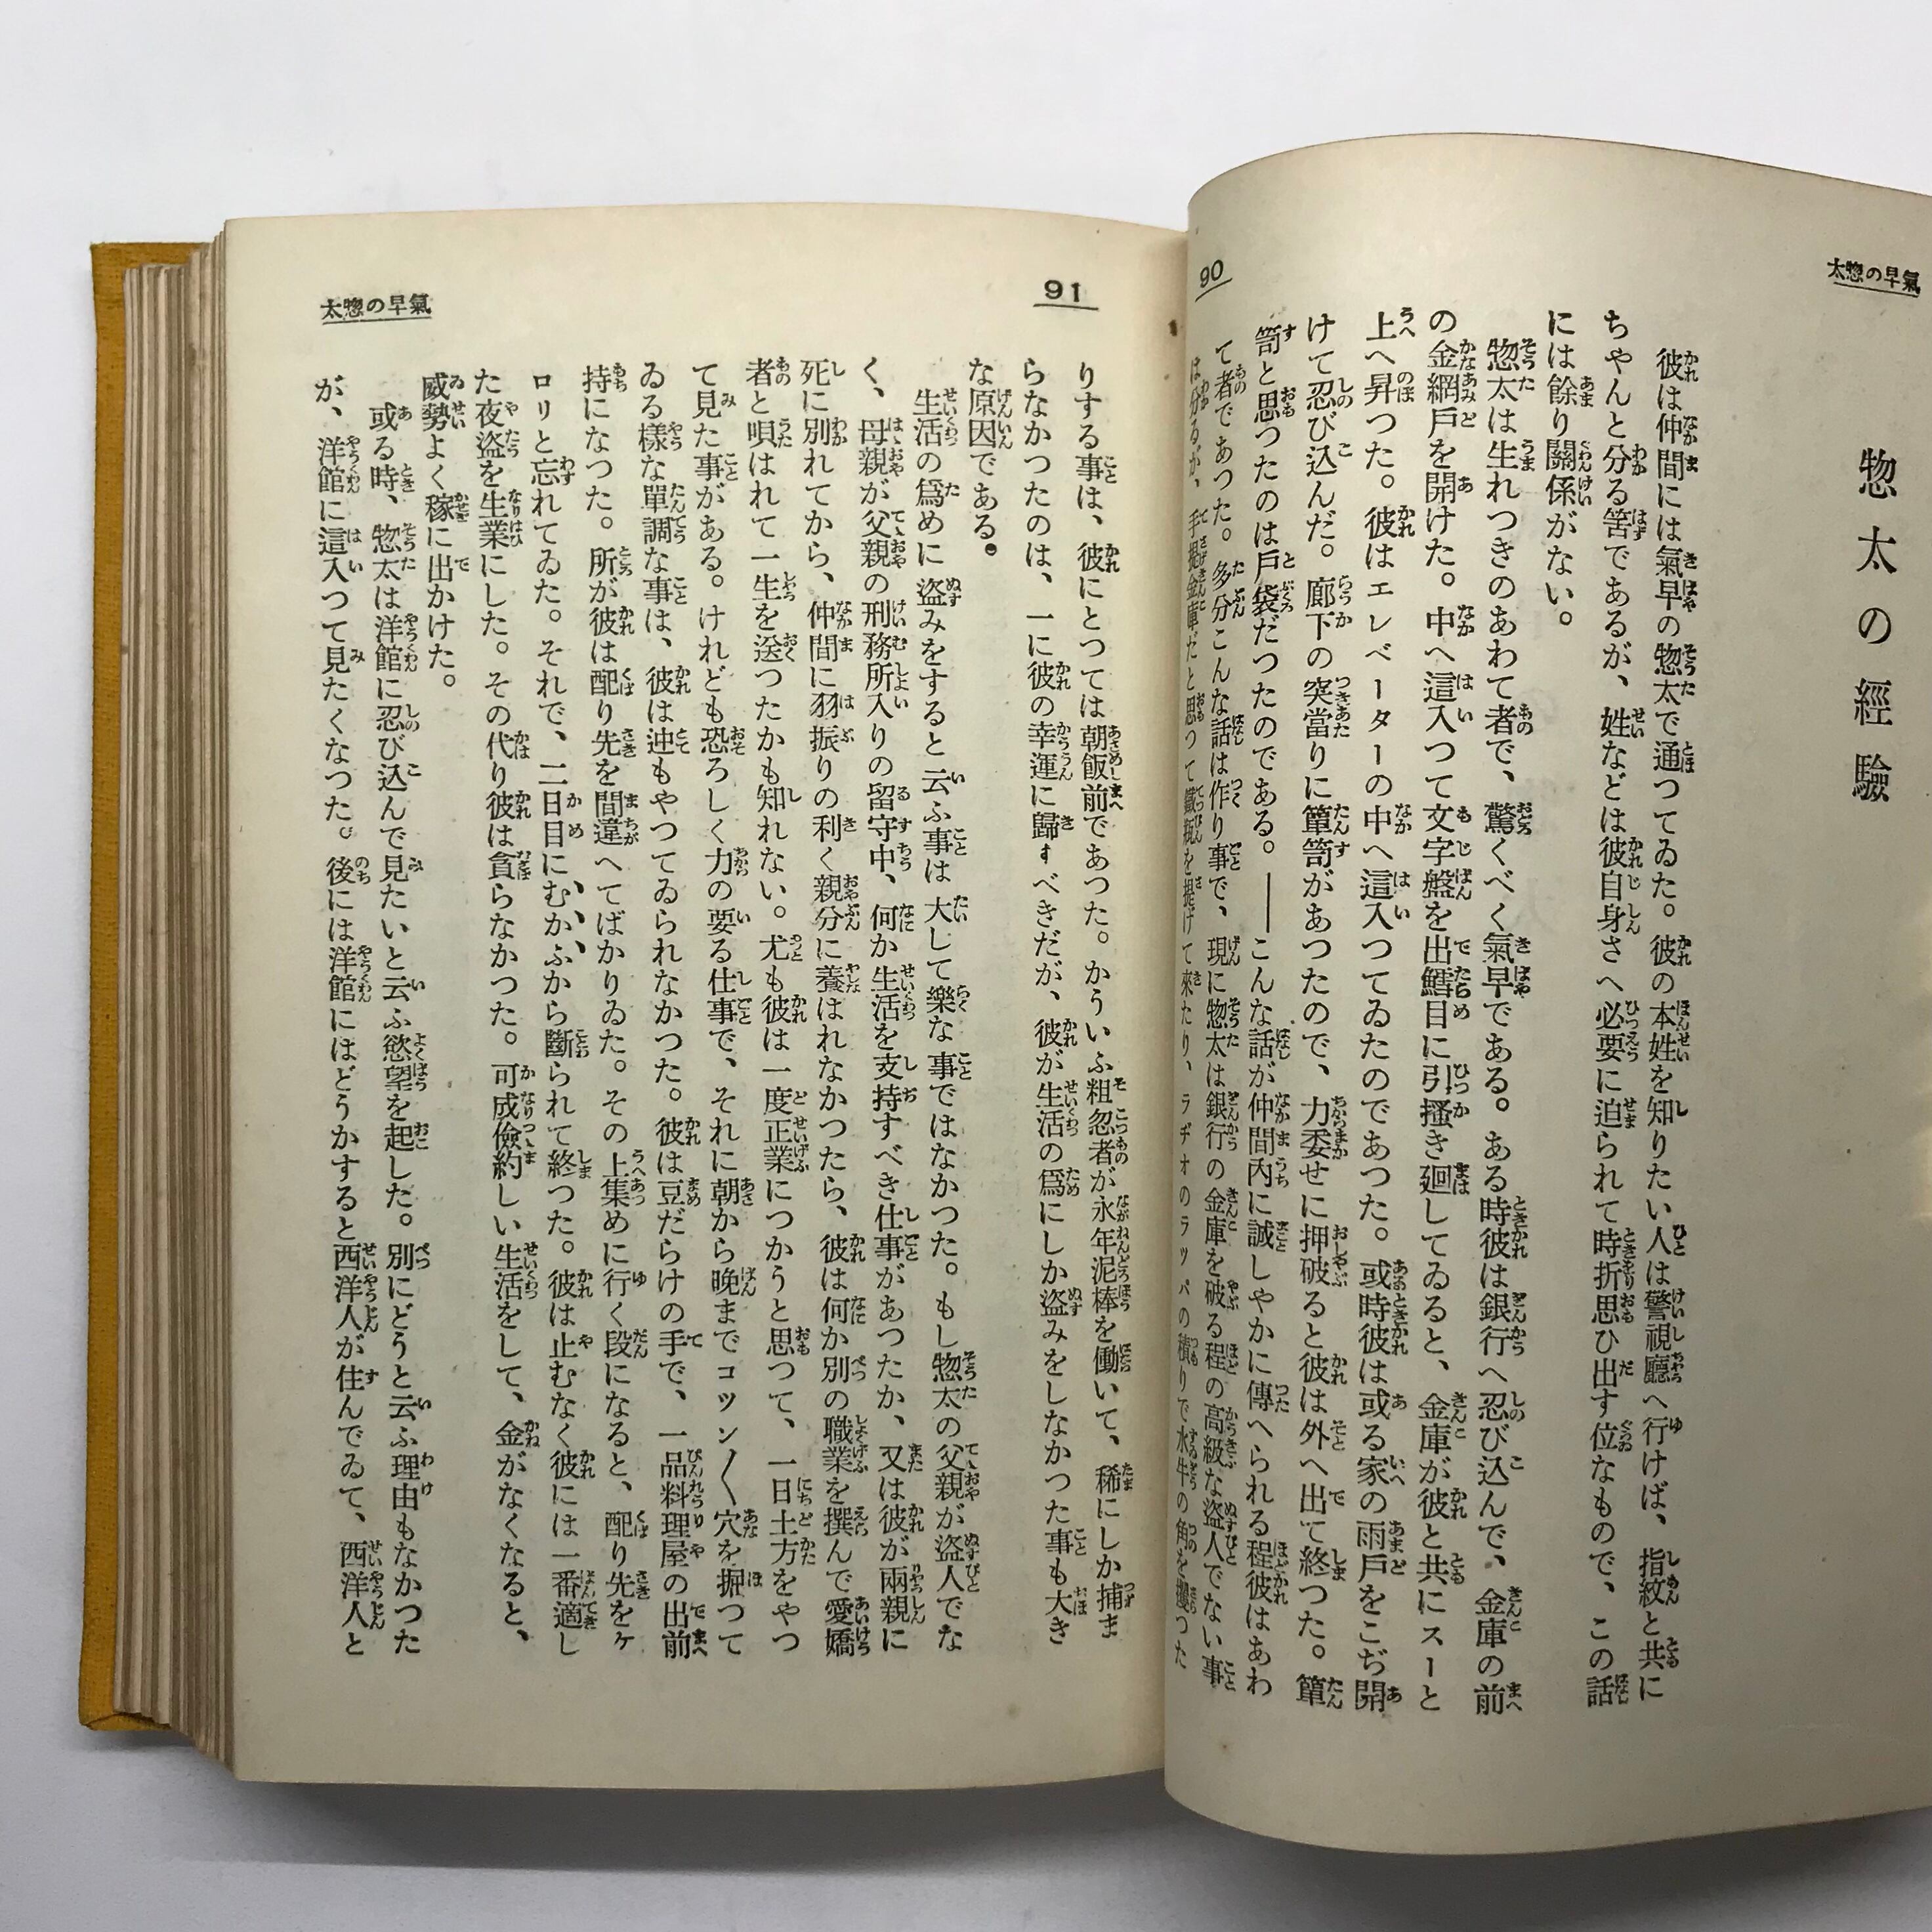 太惣の早氣
惣太の經驗
彼は仲間には氣早の惣太で通つてゐた。彼の本姓を知りたい人は警視廳へ行けば、指紋と共に
ちやんと分る筈であるが、姓などは彼自身さへ必要に迫られて時折思ひ出す位なもので、この話
には餘り關係がない。
惣太は生れつきのあわて者で、驚くべく氣早である。ある時彼は銀行へ忍び込んで、金庫の前
の金網戸を開けた。中へ這入つて文字盤を出鱈目に引搔き廻してゐると、金庫が彼と共にスーと
上へ昇つた。彼はエレベーターの中へ這入つてゐたのであつた。或時彼は或る家の雨戸をこぢ開
けて忍び込んだ。廊下の突當りに簞笥があつたので、力委せに押破ると彼は外へ出て終つた。簞
笥と思つたのは戸袋だつたのである。――こんな話が仲間內に誠しやかに傳へられる程彼はあわ
て者であつた。多分こんな話は作り事で、現に惣太は銀行の金庫を破る程の高級な盜人でない事
は分るが、手提金庫だと思つて鐵瓶を提げて來たり、ラヂオのラッパの積りで水牛の角を攫つた
90
91
太惣の早氣
りする事は、彼にとつては朝飯前であつた。かういふ粗忽者が永年泥棒を働いて、稀にしか捕ま
らなかつたのは、一に彼の幸運に歸すべきだが、彼が生活の爲にしか盜みをしなかつた事も大き
な原因である。
生活の爲めに盜みをすると云ふ事は大して樂な事ではなかつた。もし惣太の父親が盜人でな
く、母親が父親の刑務所入りの留守中、何か生活を支持すべき仕事があつたか、又は彼が兩親に
死に別れてから、仲間に羽振りの利く親分に養はれなかつたら、彼は何か別の職業を撰んで愛嬌
者と唄はれて一生を送つたかも知れない。尤も彼は一度正業につかうと思つて、一日土方をやつ
て見た事がある。けれども恐ろしく力の要る仕事で、それに朝から晩までコツン〳〵穴を掘つて
ゐる樣な單調な事は、彼は迚もやつてゐられなかつた。彼は豆だらけの手で、一品料理屋の出前
持になつた。所が彼は配り先を間違へてばかりゐた。その上集めに行く段になると、配り先をケ
ロリと忘れてゐた。それで、二日目にむかふから斷られて終つた。彼は止むなく彼には一番適し
た夜盜を生業にした。その代り彼は貪らなかつた。可成儉約しい生活をして、金がなくなると、
威勢よく稼に出かけた。
或る時、惣太は洋館に忍び込んで見たいと云ふ慾望を起した。別にどうと云ふ理由もなかつた
が、洋館に這入つて見たくなつた。後には洋館にはどうかすると西洋人が住んでゐて、西洋人と